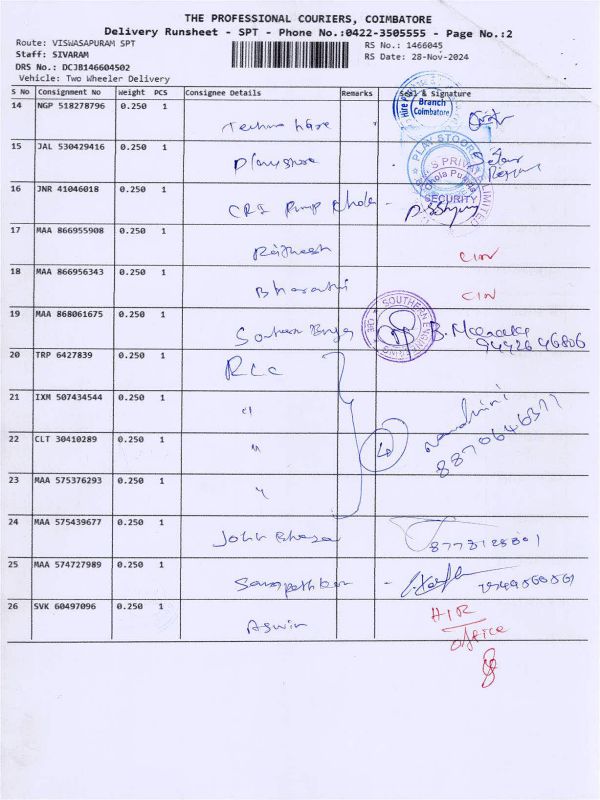 THE PROFESSIONAL COURIERS, COIMBATORE
Delivery Runsheet - SPT - Phone No.:0422-3505555 - Page No.:2
Route: VISWASAPURAM SPT RS No.: 1466045
Staff: SIVARAM RS Date: 28-Nov-2024
DRS No.: DCJB146604502
Vehicle: Two Wheeler Delivery
S No Consignment No Weight PCS Consignee Details Remarks Seal & Signature
14 NGP 518278796 0.250 1
Hire Branch Coimbatore
15 JAL 530429416 0.250 1 Playstore
PLAY STOORA
S PRIVATE LIMITED
SECURITY
16 JNR 41046018 0.250 1 CRI Pump
17 MAA 866955908 0.250 1 Rajheesh
18 MAA 866956343 0.250 1 Bharathi
19 MAA 868061675 0.250 1 Southern
SOUTHERN ENGINEERING CBE
B. 94426 46806
20 TRP 6427839 0.250 1 RCC
21 IXM 507434544 0.250 1 "
Nandhini
22 CLT 30410289 0.250 1 "
23 MAA 575376293 0.250 1 "
24 MAA 575439677 0.250 1 John Bhasa
25 MAA 574727989 0.250 1
26 SVK 60497096 0.250 1 Aswin
H/R
office